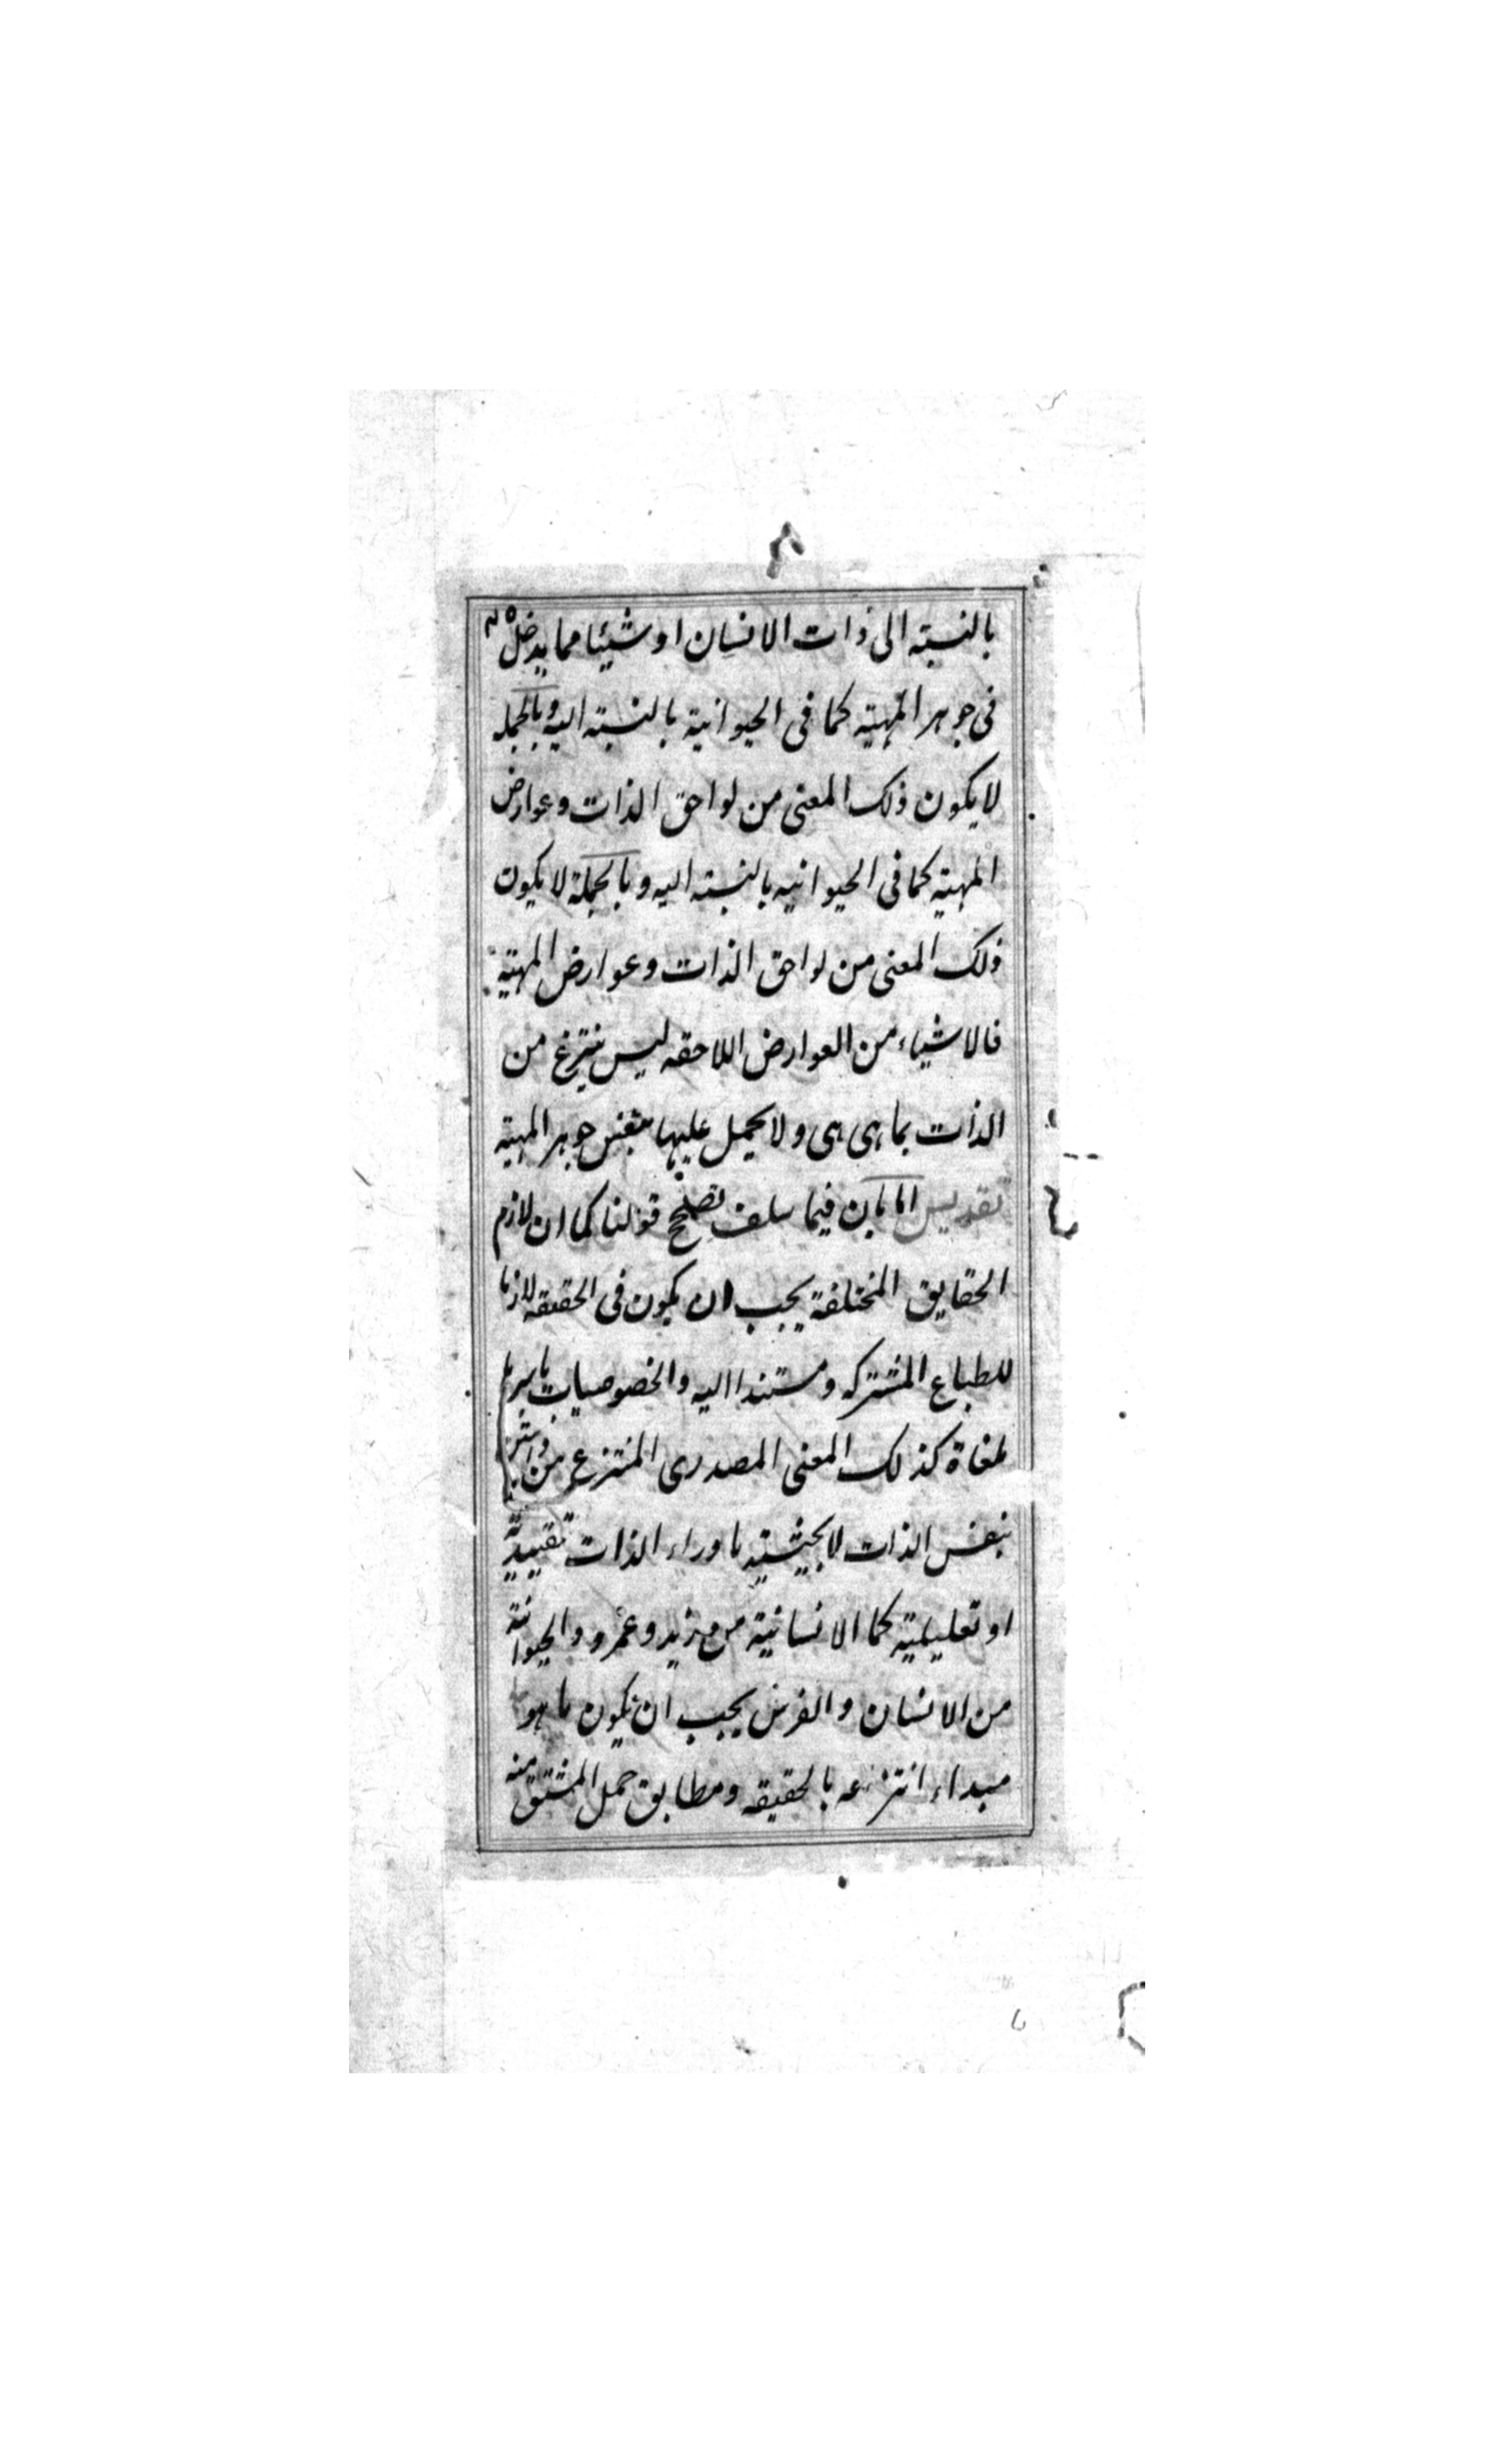 بالنسبته الى ذات الانسان او شيئا مما يدخل
فى جوهر المهيته كما فى الحيوانية بالنسبته اليه وبالجمله
لا يكون ذلك المعنى من لواحق الذات وعوارض
المهيته كما فى الحيوانيه بالنسبته اليه وبالجملة لا يكون
ذلك المعنى من لواحق الذات وعوارض المهيته
فالاشياء من العوارض اللاحقه ليس ينتزع من
الذات بما هى هى ولا يحمل عليها بنفس جوهر المهيته
تقديس اما بان فيما سلف قولنا كما ان لازم
الحقايق المختلفة يجب ان يكون فى الحقيقه لازما
للطباع المشتركه ومستندا اليه والخصوصيات باسرها
ملغاة كذلك المعنى المصدرى المنتزع من
بنفس الذات لا بحيثيته ما وراء الذات تقييدية
او تعليلية كما الانسانية من زيد وعمرو والحيوانية
من الانسان والفرس يجب ان يكون ما هو
مبداء انتزاعه بالحقيقه ومطابق حمل المشتق منه